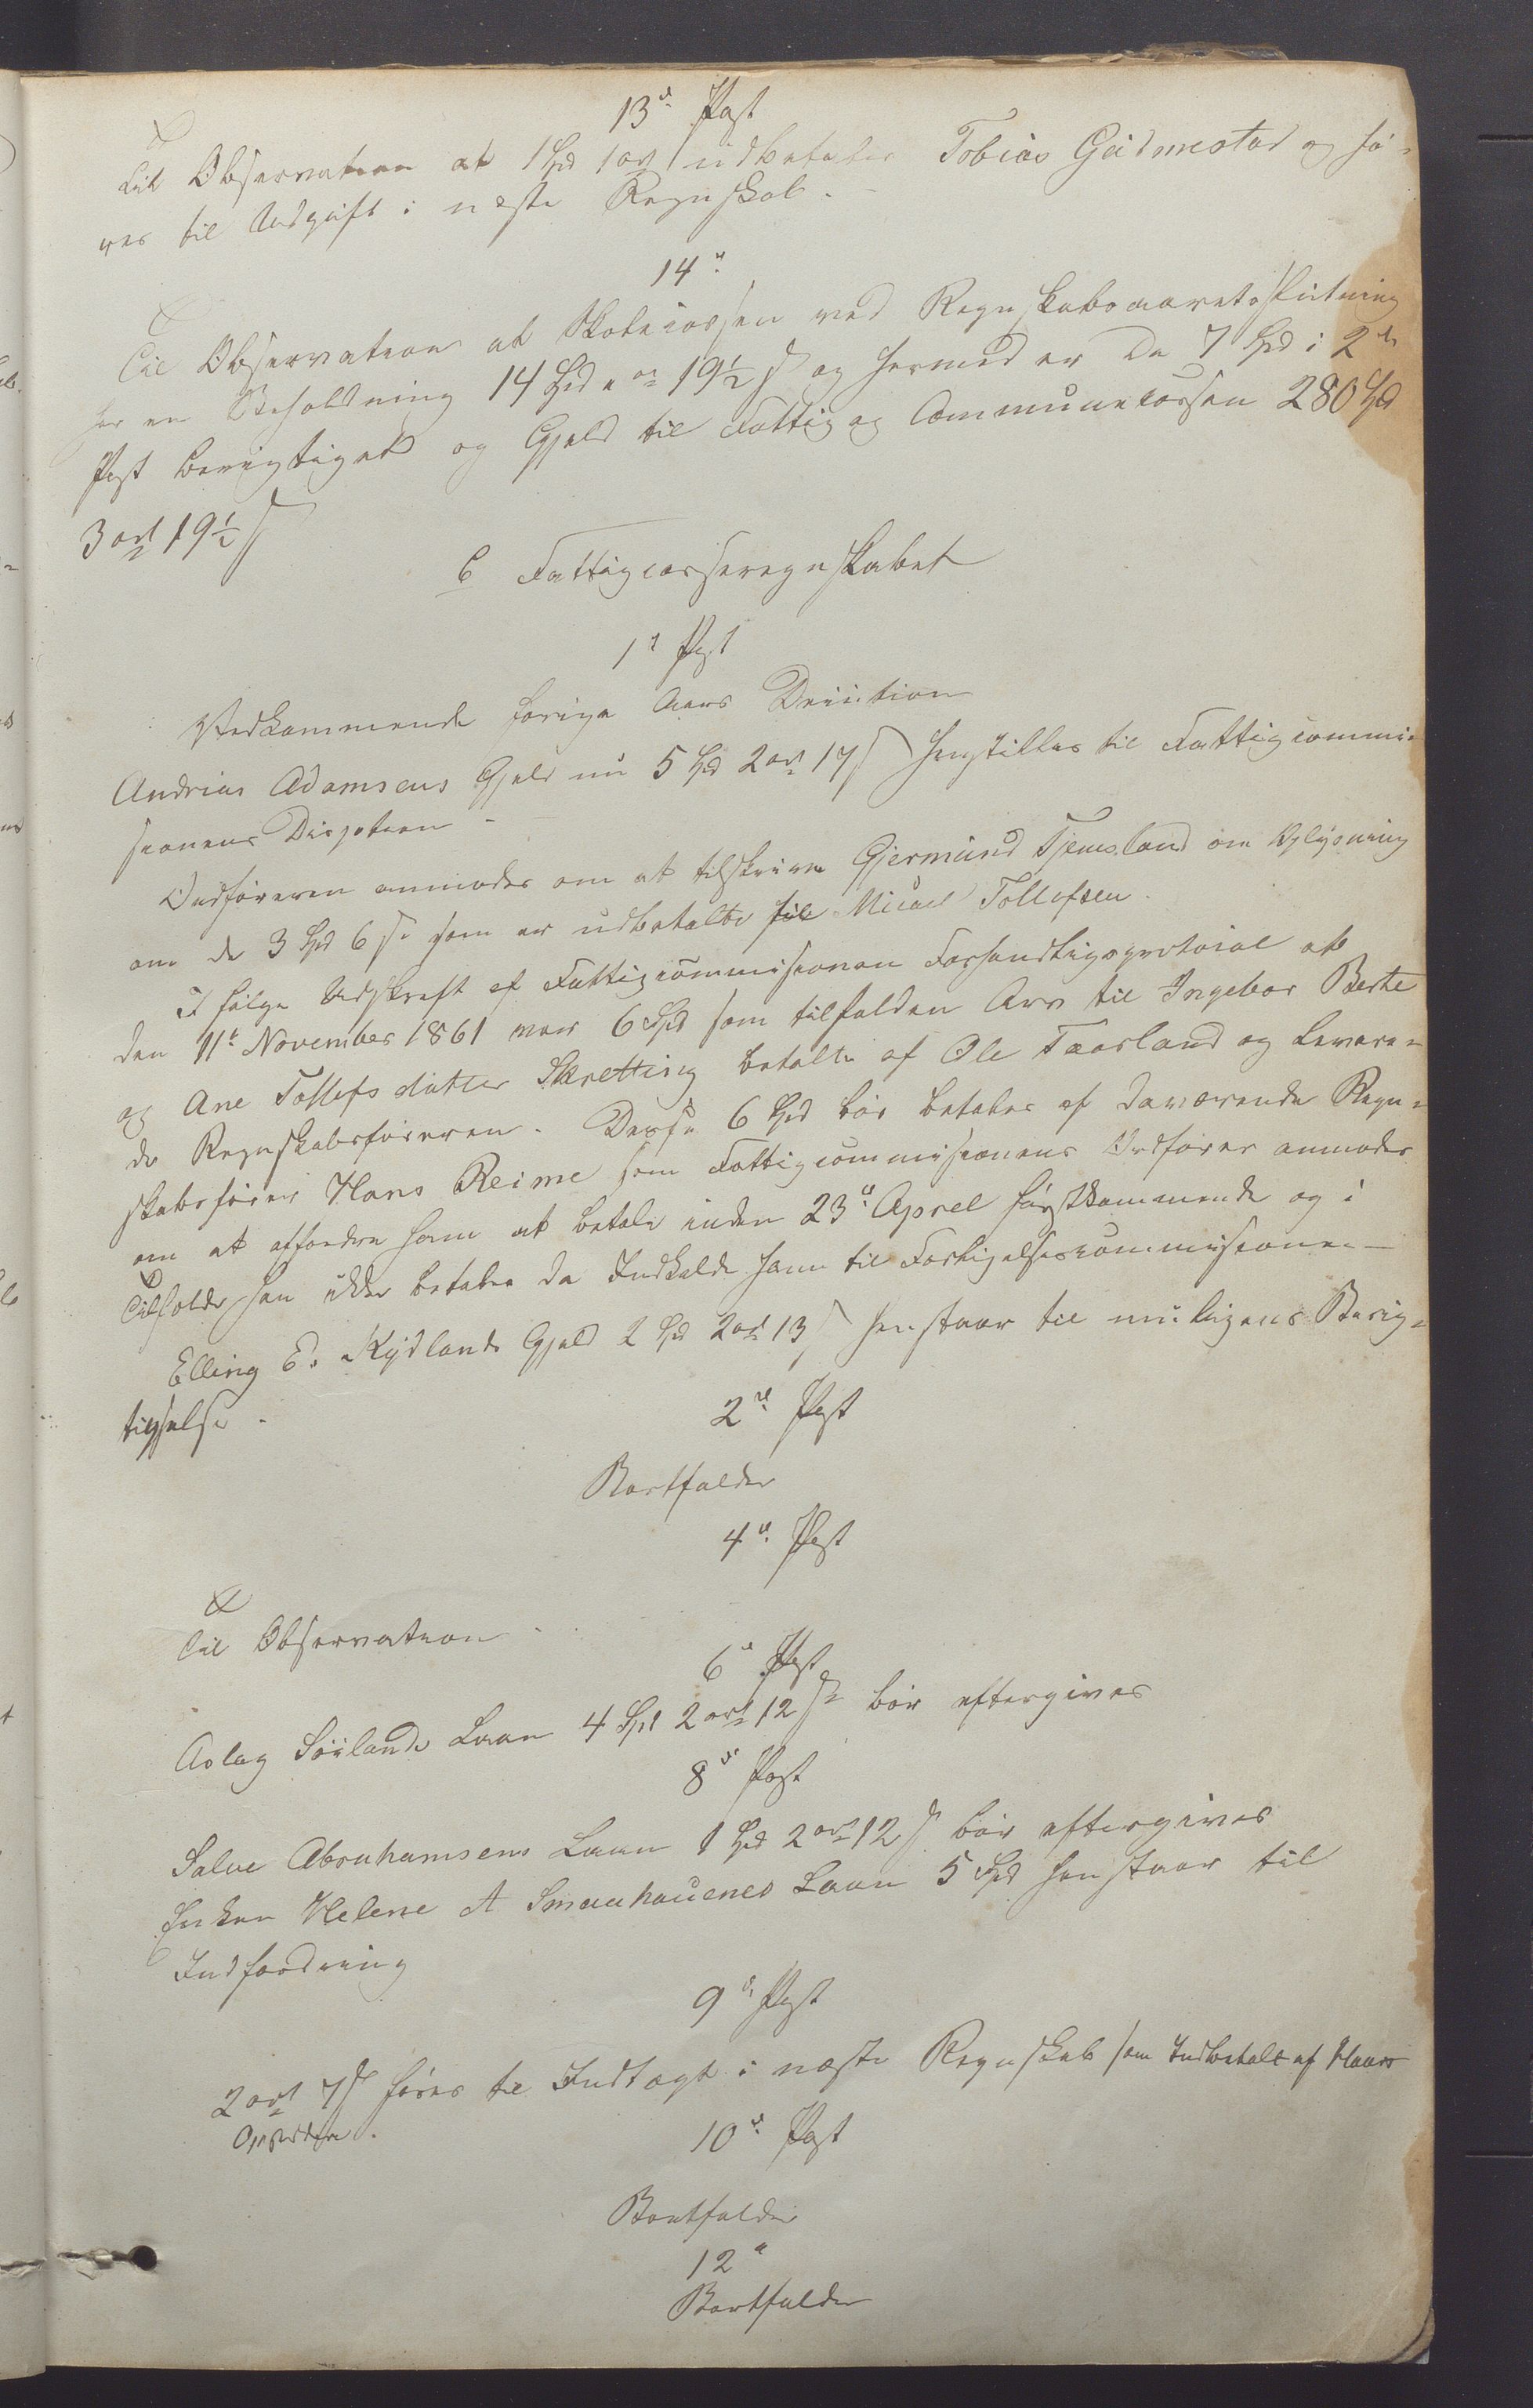 13de Post
Til Observation at 1 Spd 1 ort udbetales Tobias Geidmestad og fø-
res til Udgift i næste Regnskab.
14de
Til Observation at Skolecassen ved Regnskabsaarets slutning
har en Beholdning 14 Spd " ort 19½ s og hermed er de 7 Spd i 2den
Post berigtiget og Gjeld til Fattig og Communecassen 280 Spd
3 ort 19½ s
C Fattigcasseregnskabet
1ste Post
Vedkommende forige Aars Desision
Andrias Adamsens Gjeld nu 5 Spd 2 ort 17 s henstilles til Fattigcommi-
sionens Disjotion -
Ordføreren anmodes om at tilskrive Gjermund Tjemsland om Oplysning
om de 3 Spd 6 s som er udbetalte til Micael Tollefsen.
I følge Udskrift af Fattigcommisionen Forhandligsprotocol at
den 11te November 1861 var 6 Spd som tilfalden Arv til Ingebor Berte
og Ane Tollefsdatter Skretting betalte af Ole Taarland og levere-
de Regnskabsføreren. Desse 6 Spd bør betales af daværende Regn-
skabsfører Hans Reime som Fattigcommisionens Ordfører anmodes
om at affordre ham at betale inden 23de Aprel førstkommende og i
Tilfælde han ikke betaler da Indkalde ham til Forligelsescommisionen -
Elling E. Kydlands Gjeld 2 Spd 2 ort 13 s henstaar til muligens Berig-
tigelse -
2den Post
Bortfalder
4de Post
Til Observation -
6te Post
Aslag Søilands Laan 4 Spd 2 ort 12 s bør eftergives
8de Post
Salve Abrahamsens Laan 1 Spd 2 ort 12 s bør eftergives
Enken Helene A Smaahauenes Laan 5 Spd henstaar til
Indfordring
9de Post
2 ort 7 s føres til Indtægt i næste Regnskab som Indbetalt af Haar
10de Post
Bortfalder
12te
Bortfalder